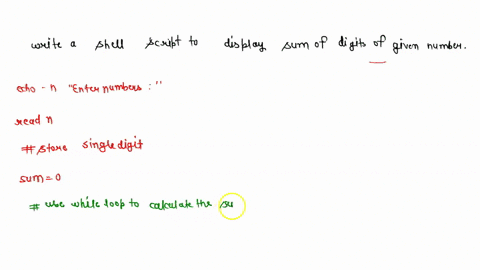 write a shell script to display sum of digits of given number.
echo -n "Enter numbers :"
read n
# store single digit
sum=0
# use while loop to calculate the su